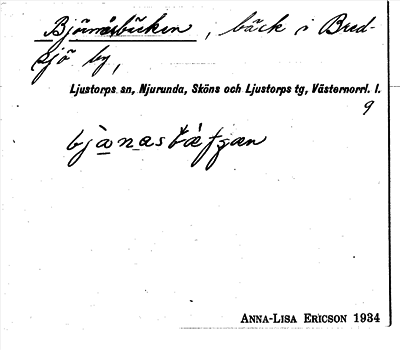 Björnåsbäcken, bäck i Bred-
sjö by,
Ljustorps sn, Njurunda, Sköns och Ljustorps tg, Västernorrl. l.
9
ANNA-LISA ERICSON 1934